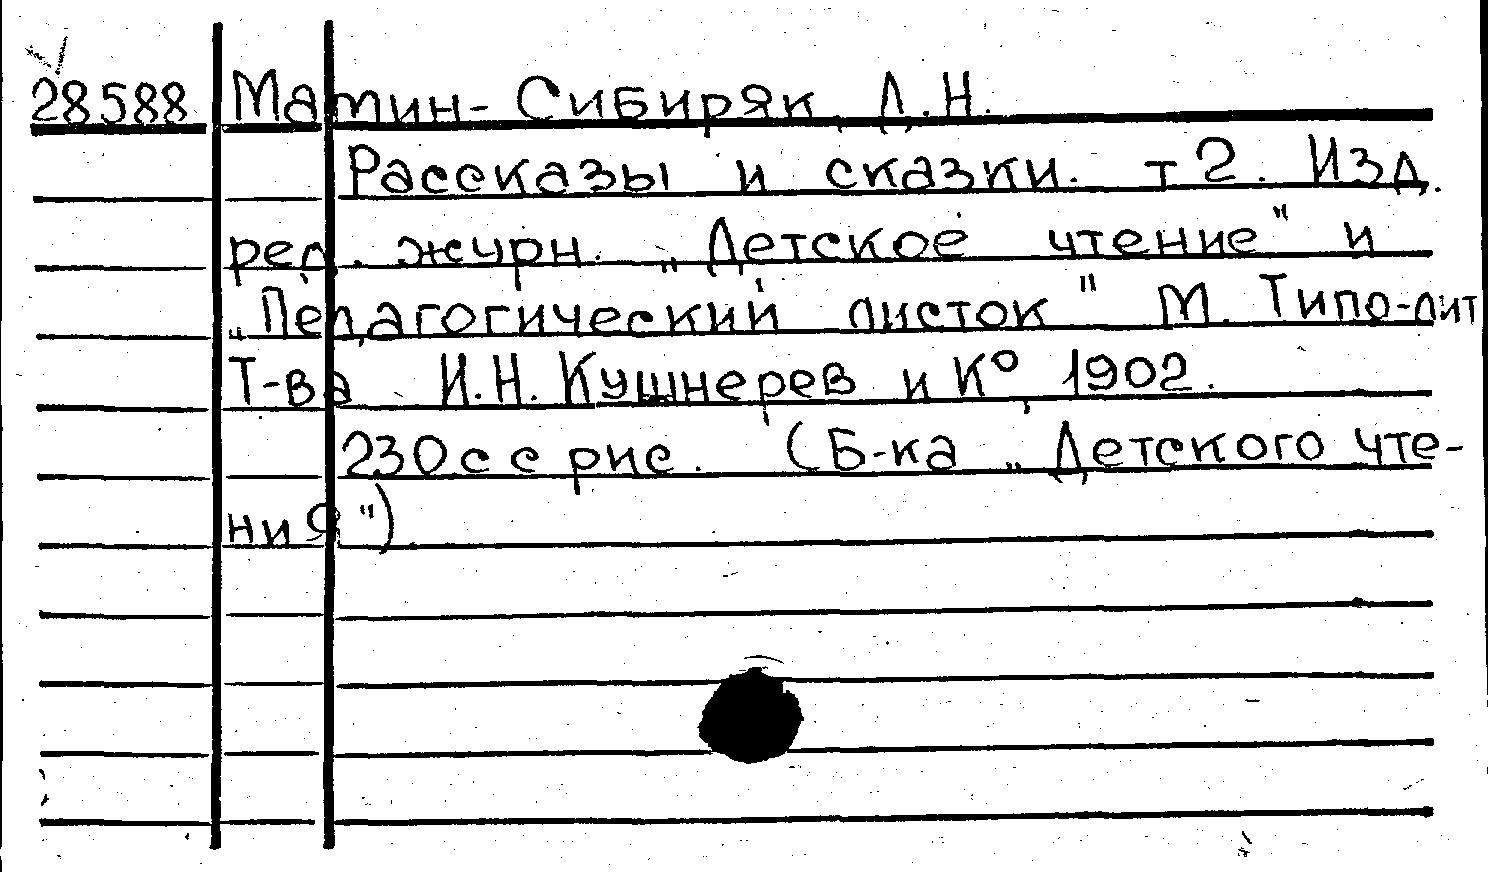 28588 Матин-Сибиряк, Д.Н.
Рассказы и сказки. т 2. Изд.
ред. журн. „Детское чтение" и
„Педагогический листок" М. Типо-лит
Т-ва И.Н. Кушнерев и К⁰, 1902.
230с с рис. (Б-ка „Детского чте-
ния")